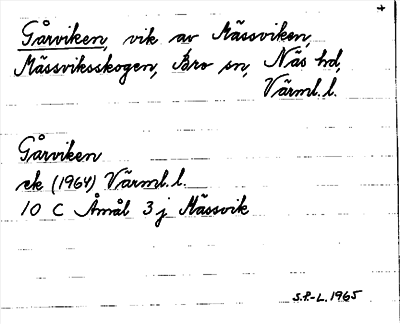 +
Gårviken, vik av Mässviken,
Mässviksskogen, Bro sn, Näs hd,
Värml. l.
Gårviken
ek (1964) Värml. l.
10 C Åmål 3 j Mässvik
S.P.-L. 1965